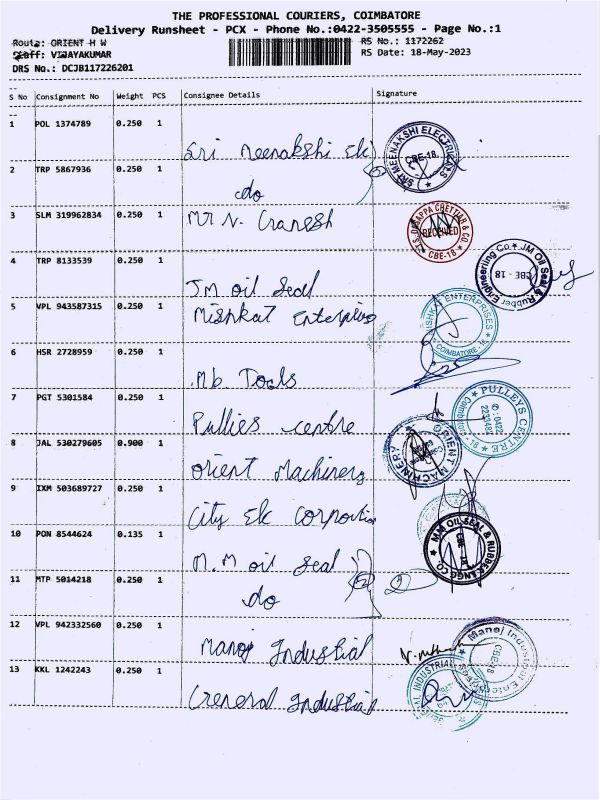 THE PROFESSIONAL COURIERS, COIMBATORE
Delivery Runsheet - PCX - Phone No.:0422-3505555 - Page No.:1
Route: ORIENT H W
RS No.: 1172262
Staff: VIJAYAKUMAR
RS Date: 18-May-2023
DRS No.: DCJB117226201
S No Consignment No Weight PCS Consignee Details Signature
1 POL 1374789 0.250 1
Sri Meenakshi Elc
SRI MEENAKSHI ELECTRICALS
CBE-18
2 TRP 5867936 0.250 1
do
3 SLM 319962834 0.250 1
Mr N. Ganesh
CHETTIAR & CO.
RECEIVED
CBE-18
4 TRP 8133539 0.250 1
JM oil Seal
JM Oil Seal & Rubber Engineering Co.
CBE - 18
5 VPL 943587315 0.250 1
Mishkat Enterprises
ENTERPRISES
COIMBATORE - 18
6 HSR 2728959 0.250 1
Mb. Tools
7 PGT 5301584 0.250 1
Pullies centre
PULLEYS CENTRE
Coimbatore - 18
8 JAL 530279605 0.900 1
Orient Machinery
ORIENT MACHINERY
9 IXM 503689727 0.250 1
City Elc Corportion
10 PON 8544624 0.135 1
M.M oil Seal
MM OIL SEAL & RUBBER ENGG CO
11 MTP 5014218 0.250 1
do
2
12 VPL 942332560 0.250 1
Manoj Industrial
Manoj Industrial Enter
CBE-18
13 KKL 1242243 0.250 1
General Industrial
INDUSTRIAL